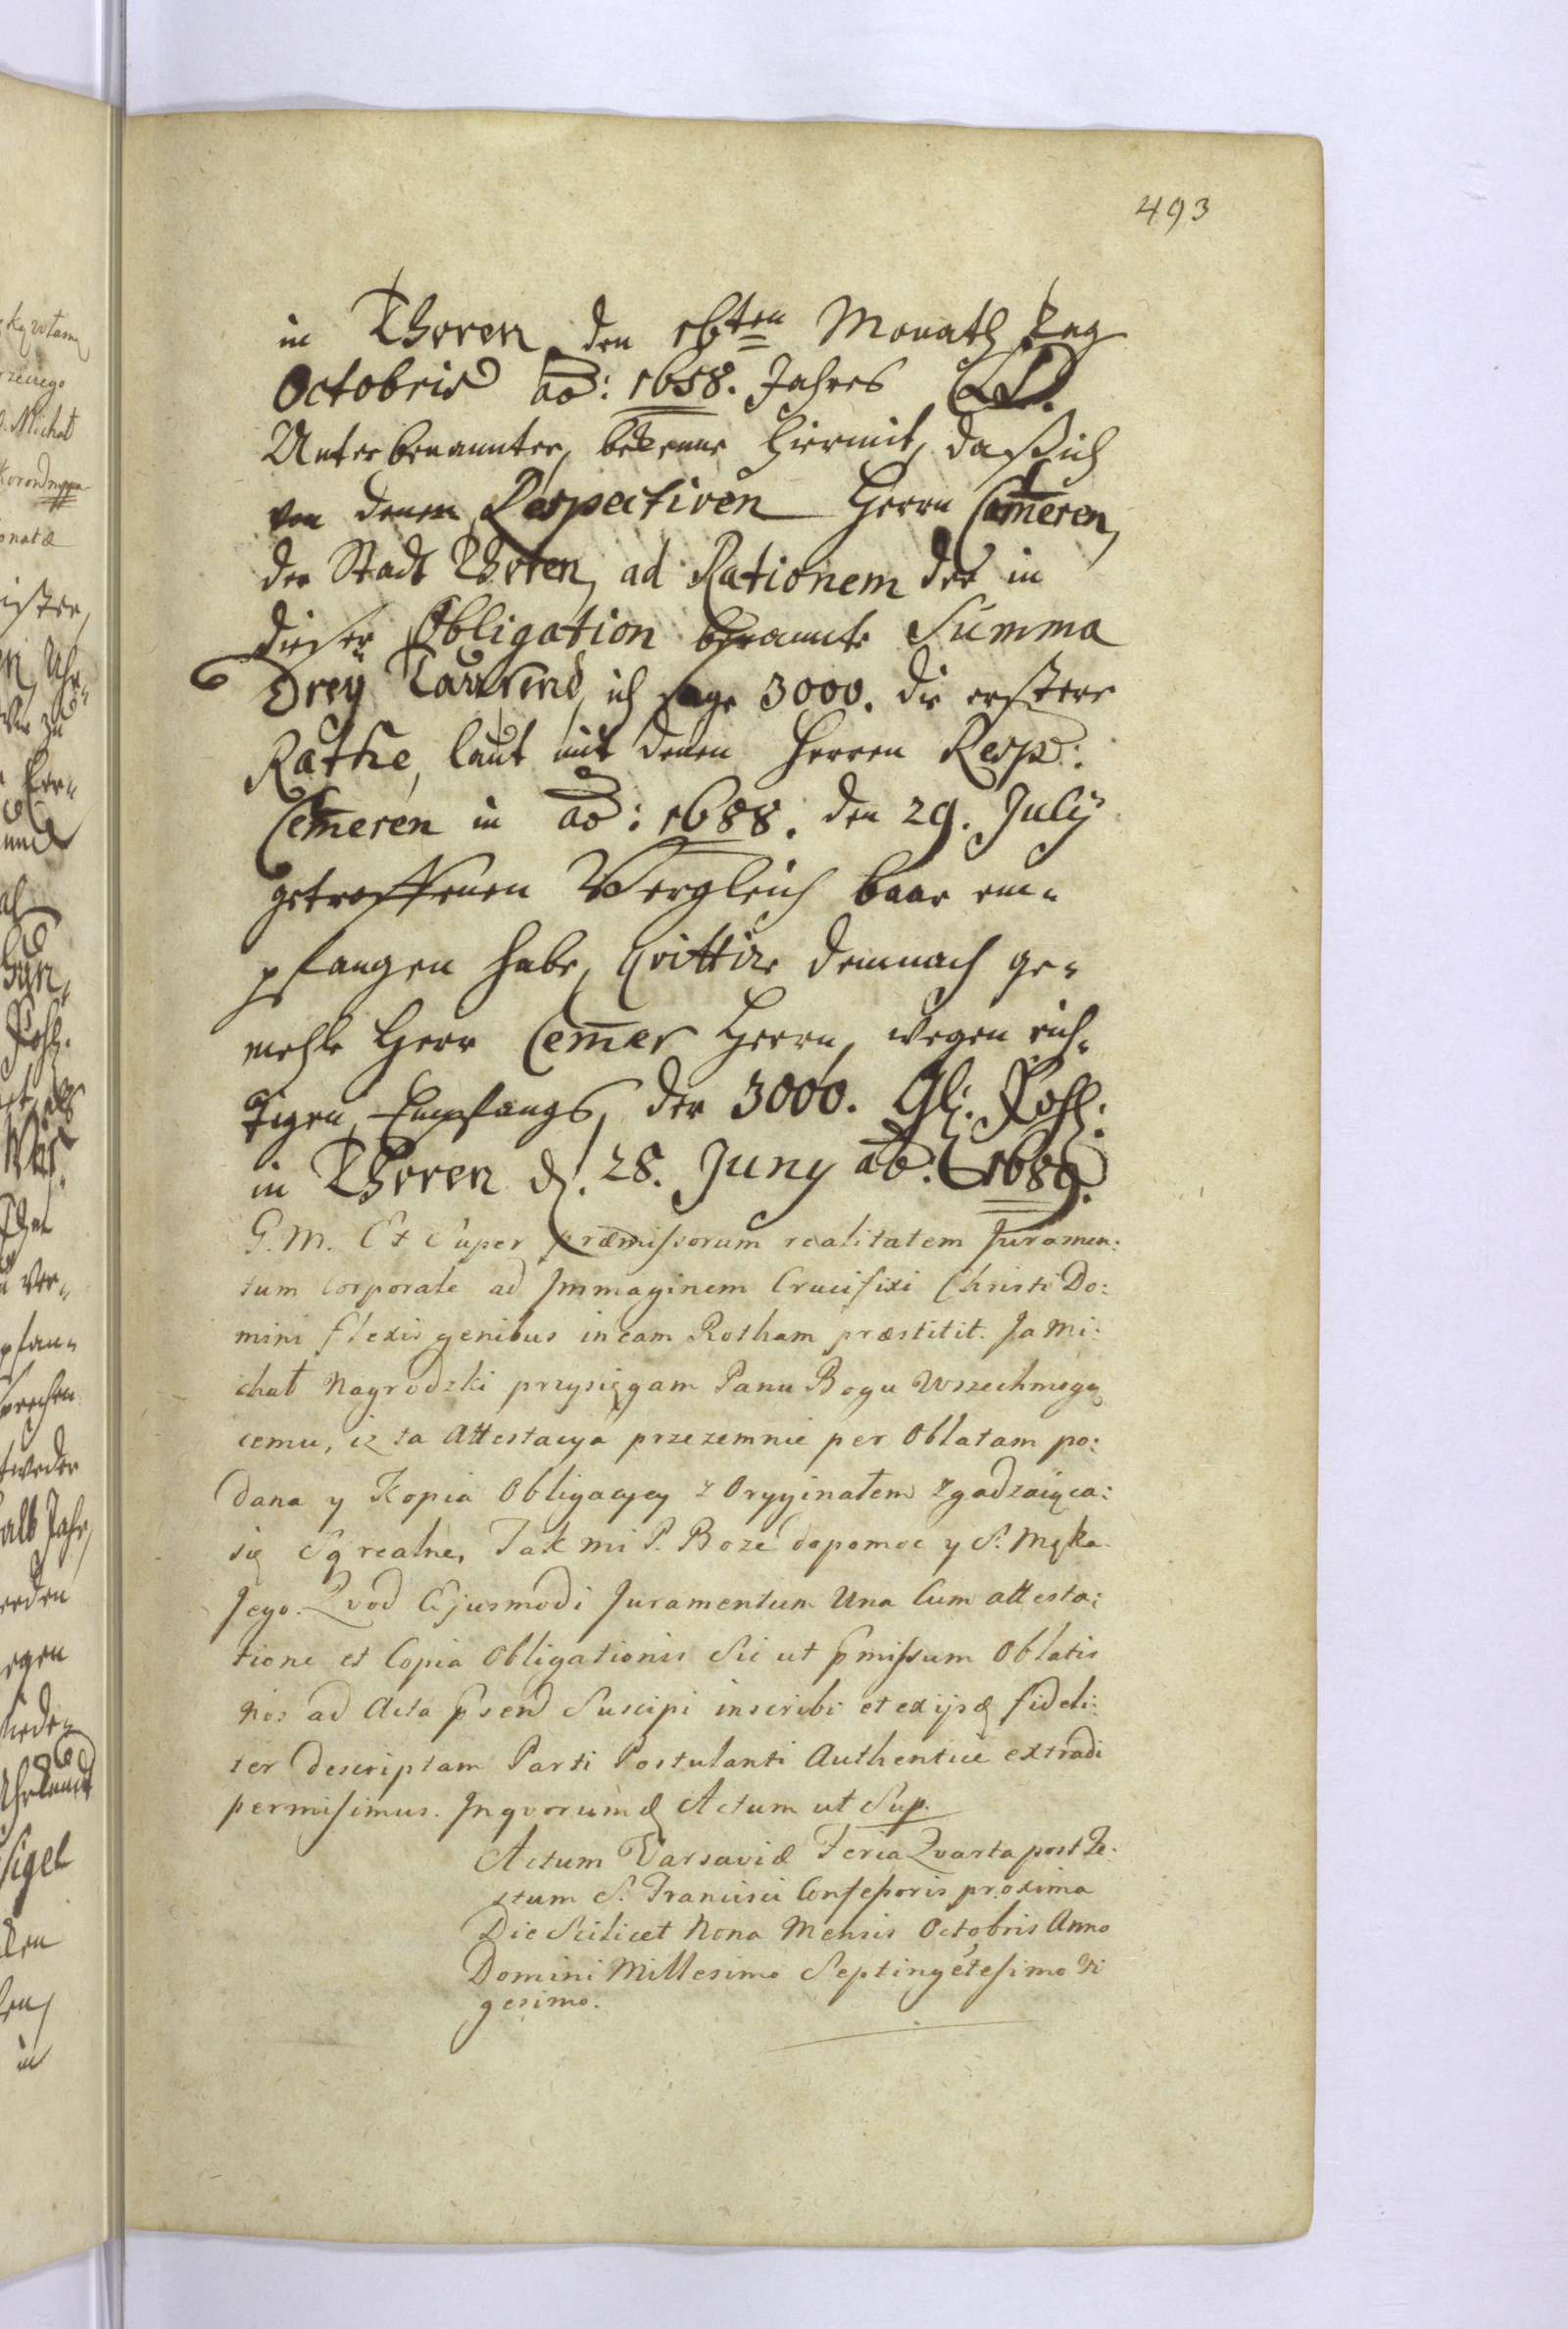 493
in Thoren den 16ten Monath Tag
Octobris ao: 1658. Jahres
Unterbenannter, bekenne hiermit, daß ich
von denen Respectiven Herrn Cem̄eren,
der Stadt Thoren, ad Rationem der in
dieser Obligation benannte Summa
Dreÿ Tausend, ich sage 3000. die erstere
Rathe, laut mit denen Herren Resp:
Cem̄eren in ao: 1688. den 29. July
getroffenen Vergleich baar em=
pfangen habe, Qvittire demnach ge=
mehle Herr Cem̄er Herrn, wegen rich=
tigen Empfangs, der 3000. Gl: Pohl:
in Thoren d. 28. Juny ao: 1689.
G. M. Et Super præmissorum realitatem Juramen:
tum Corporale ad Immaginem Crucifixi Christi Do:
mini flexis genibus in eam Rotham præstitit. Ja Mi:
chał Nagrodzki przysięgam Panu Bogu Wszechmogą
cemu, iz ta Attestacya przezemnie per Oblatam po:
dana y Kopia Obligacyey z Oryginałem zgadzaiąca:
się Są realne, Tak mi P. Boze dopomoc y S. Męka
Jego. Qvod Ejusmodi Juramentum Una Cum attesta:
tione et Copia Obligationis Sic ut pmissum Oblatis
Nos ad Acta psend Suscipi inscribi et ex ijsq fideli:
ter descriptam Parti Postulanti Authentice extradi
permisimus. Inqvorumq Actum ut Sup.
Actum Varsaviæ Feria Qvarta post Fe:
stum S. Francisci Confessoris proxima
Die Scilicet Nona Mensis Octobris Anno
Domini Millesimo Septingētesimo Vi
gesimo.